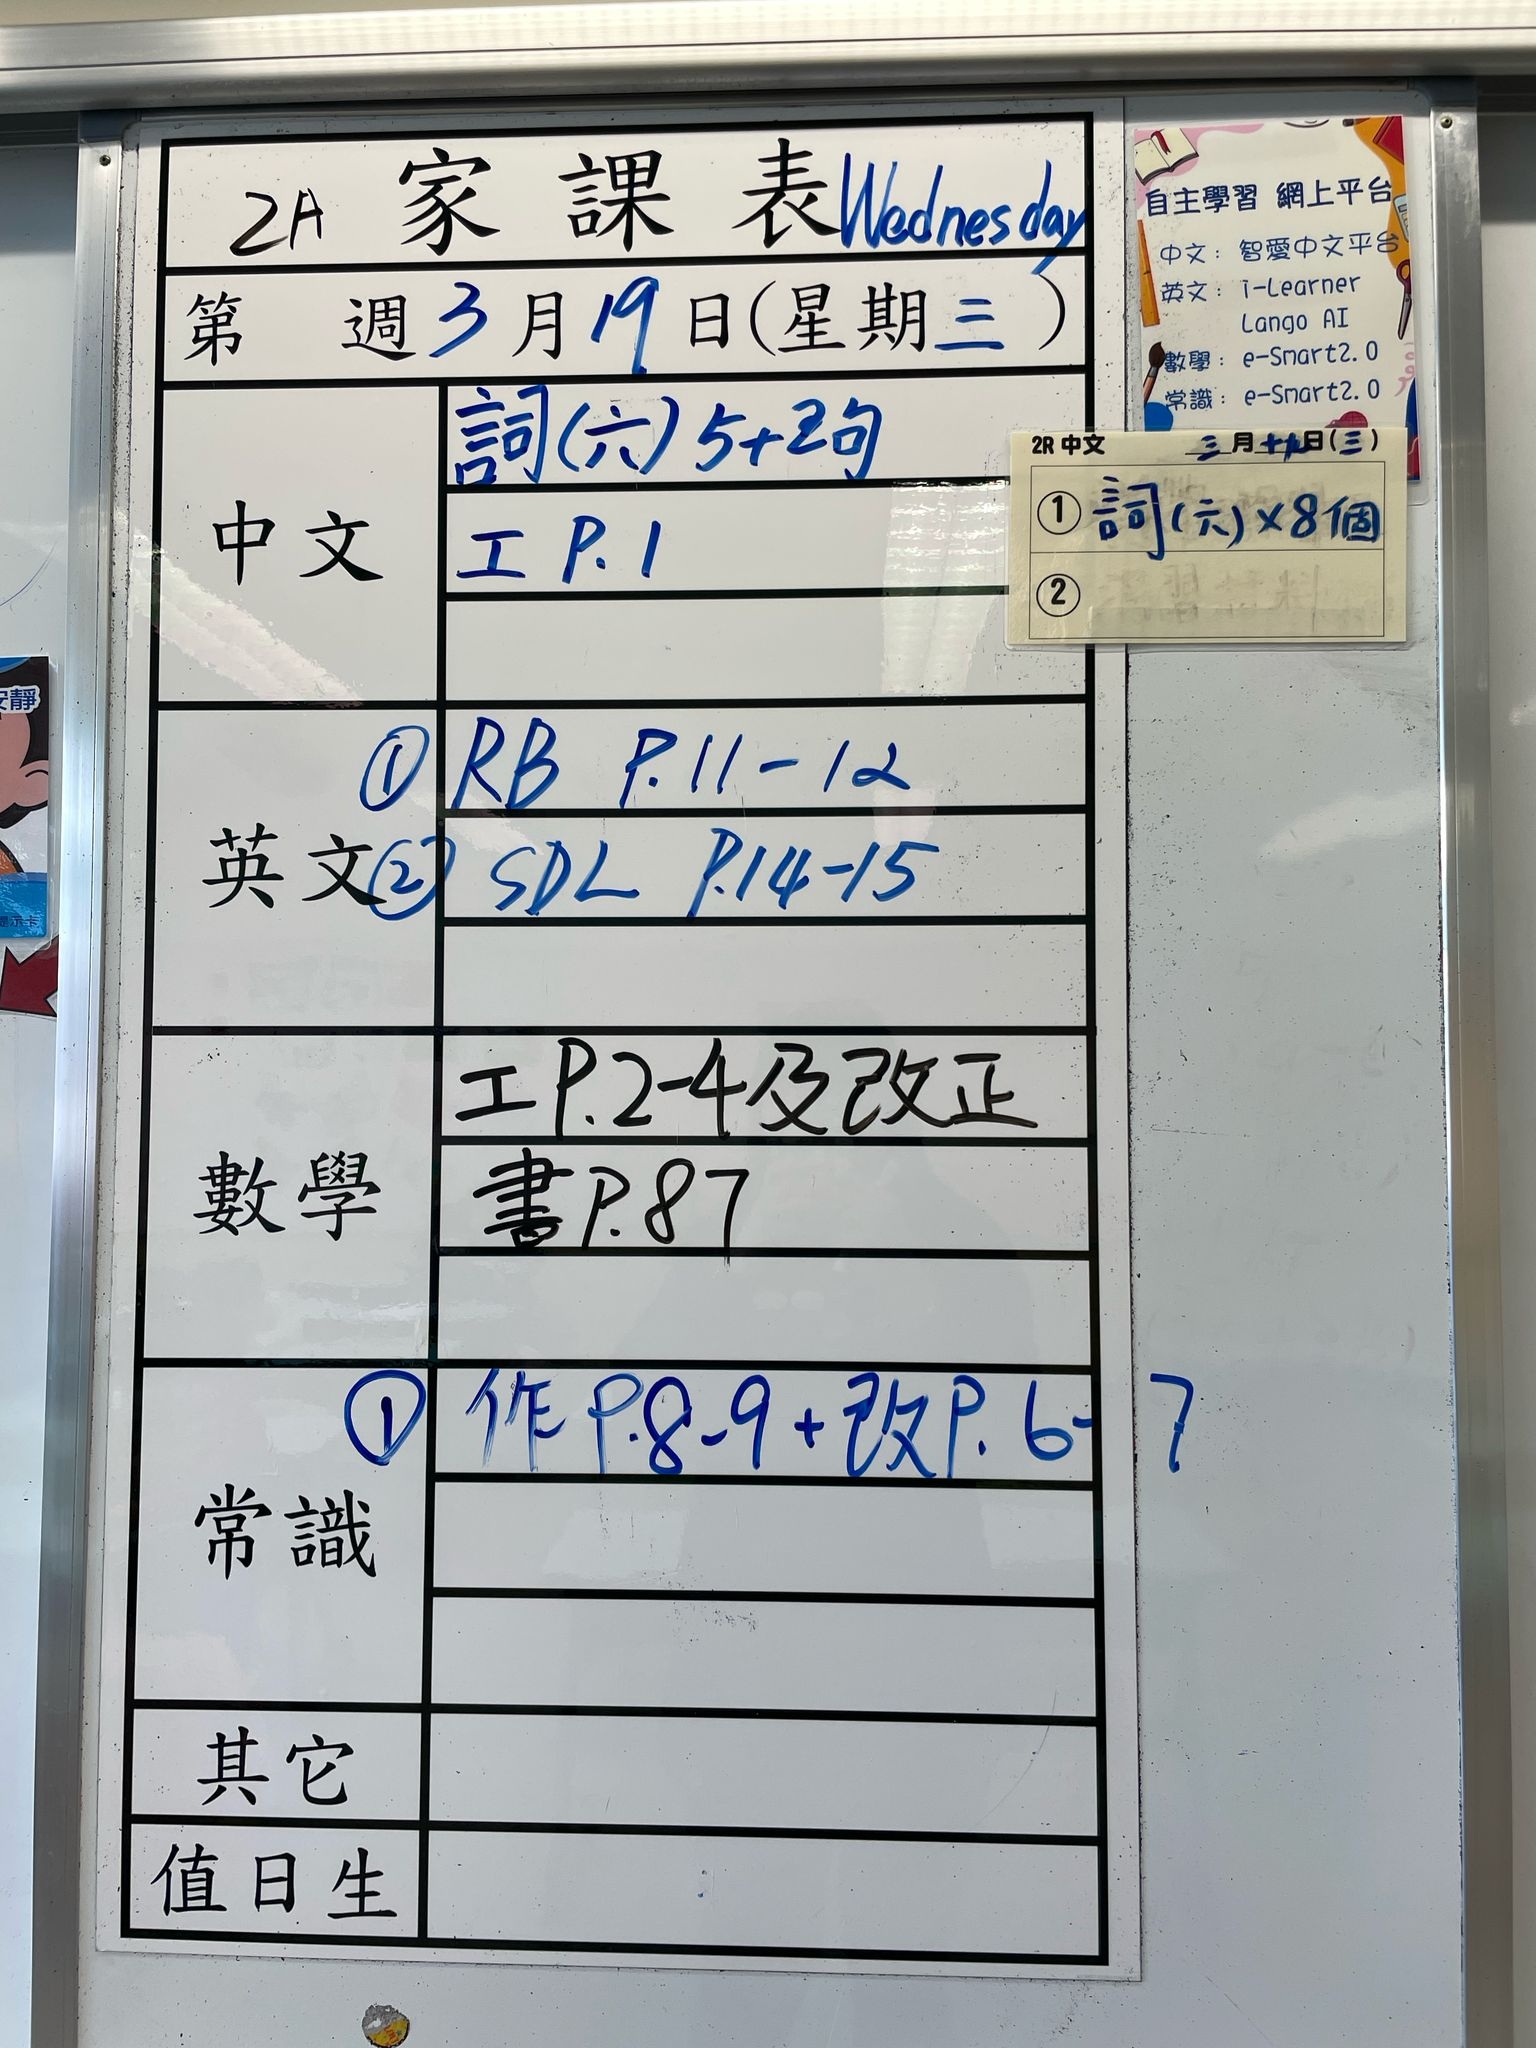 2A 家課表 Wednesday
第 週 3月19日(星期三)
中文
詞(六) 5+2句
工 P.1
英文
① RB P.11-12
② SDL P.14-15
數學
工P.2-4及改正
書P.87
常識
① 作P.8-9+改P.6-7
其它
值日生
自主學習 網上平台
中文：智愛中文平台
英文：i-Learner
Lango AI
數學：e-Smart2.0
常識：e-Smart2.0
2R 中文 三月十九日(三)
① 詞(六)×8個
②
安靜
提示卡